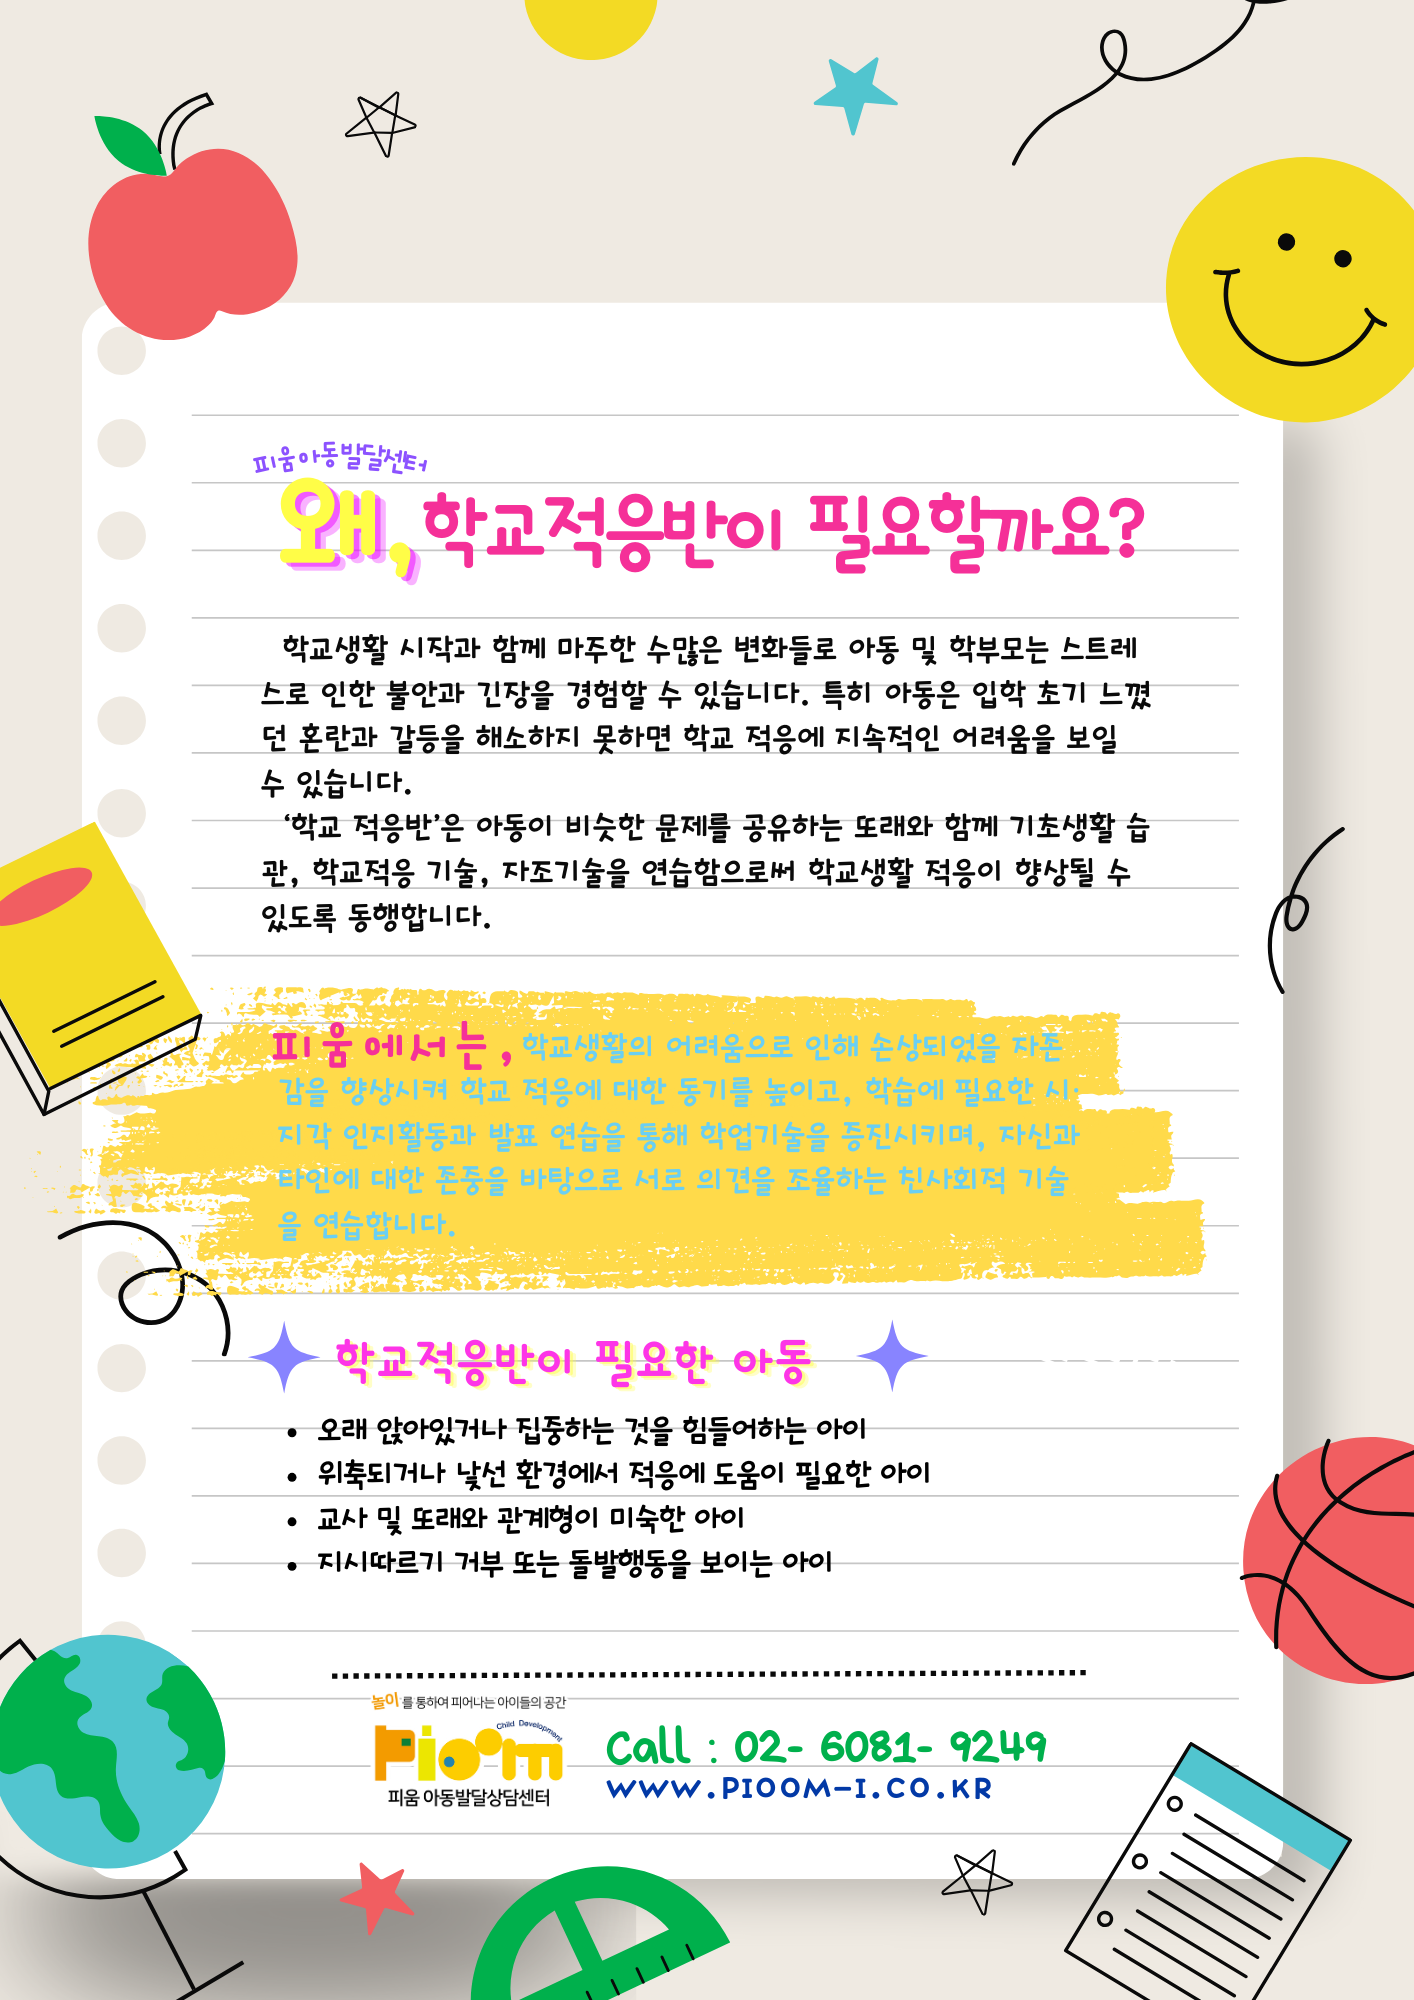 피움아동발달센터
왜, 학교적응반이 필요할까요?
학교생활 시작과 함께 마주한 수많은 변화들로 아동 및 학부모는 스트레
스로 인한 불안과 긴장을 경험할 수 있습니다. 특히 아동은 입학 초기 느꼈
던 혼란과 갈등을 해소하지 못하면 학교 적응에 지속적인 어려움을 보일
수 있습니다.
‘학교 적응반’은 아동이 비슷한 문제를 공유하는 또래와 함께 기초생활 습
관, 학교적응 기술, 자조기술을 연습함으로써 학교생활 적응이 향상될 수
있도록 동행합니다.
피움에서는, 학교생활의 어려움으로 인해 손상되었을 자존
감을 향상시켜 학교 적응에 대한 동기를 높이고, 학습에 필요한 시·
지각 인지활동과 발표 연습을 통해 학업기술을 증진시키며, 자신과
타인에 대한 존중을 바탕으로 서로 의견을 조율하는 친사회적 기술
을 연습합니다.
학교적응반이 필요한 아동
• 오래 앉아있거나 집중하는 것을 힘들어하는 아이
• 위축되거나 낯선 환경에서 적응에 도움이 필요한 아이
• 교사 및 또래와 관계형이 미숙한 아이
• 지시따르기 거부 또는 돌발행동을 보이는 아이
놀이를 통하여 피어나는 아이들의 공간
Child Development
Pioom
피움 아동발달상담센터
Call : 02- 6081- 9249
WWW.PIOOM-I.CO.KR